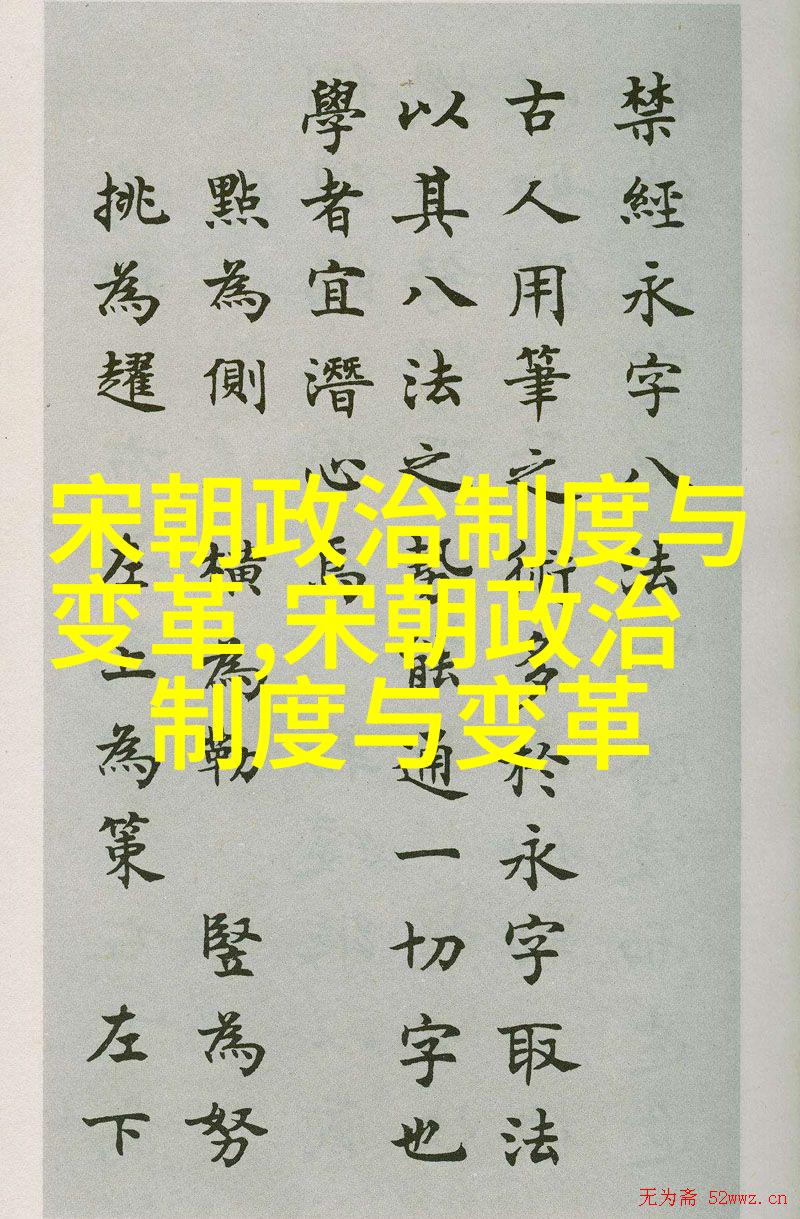 禁經永字八法
古人用筆之術多於永字取法
以其八法之勢能通一切字也
學者宜潛心焉
點為側 橫為勒 竪為努
挑為趯 左上為策 左下
宋朝政治制度与
变革,宋朝政治
制度与变革
无为斋 52wwz.cn